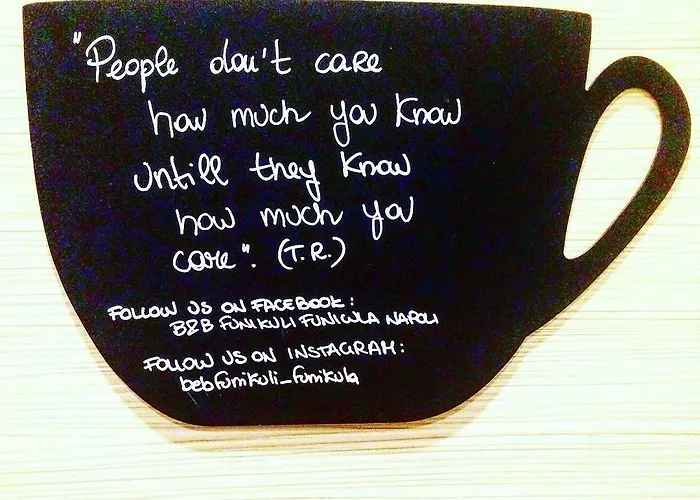 "People don't care
how much you know
untill they know
how much you
care". (T.R.)
FOLLOW US ON FACEBOOK:
B&B FUNIKULI FUNICULA NAPOLI
FOLLOW US ON INSTAGRAM:
bebfunikuli_funikula